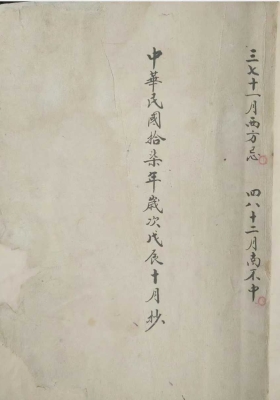 三七十一月西方忌　四八十二月南不中
中華民國拾柒年歲次戊辰十月抄